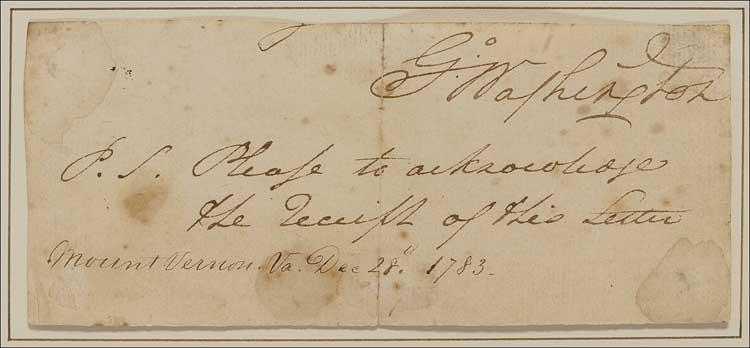 Go: Washington
P. S. Please to acknowledge
the receipt of this Letter
Mount Vernon. Va. Dec 28". 1783.